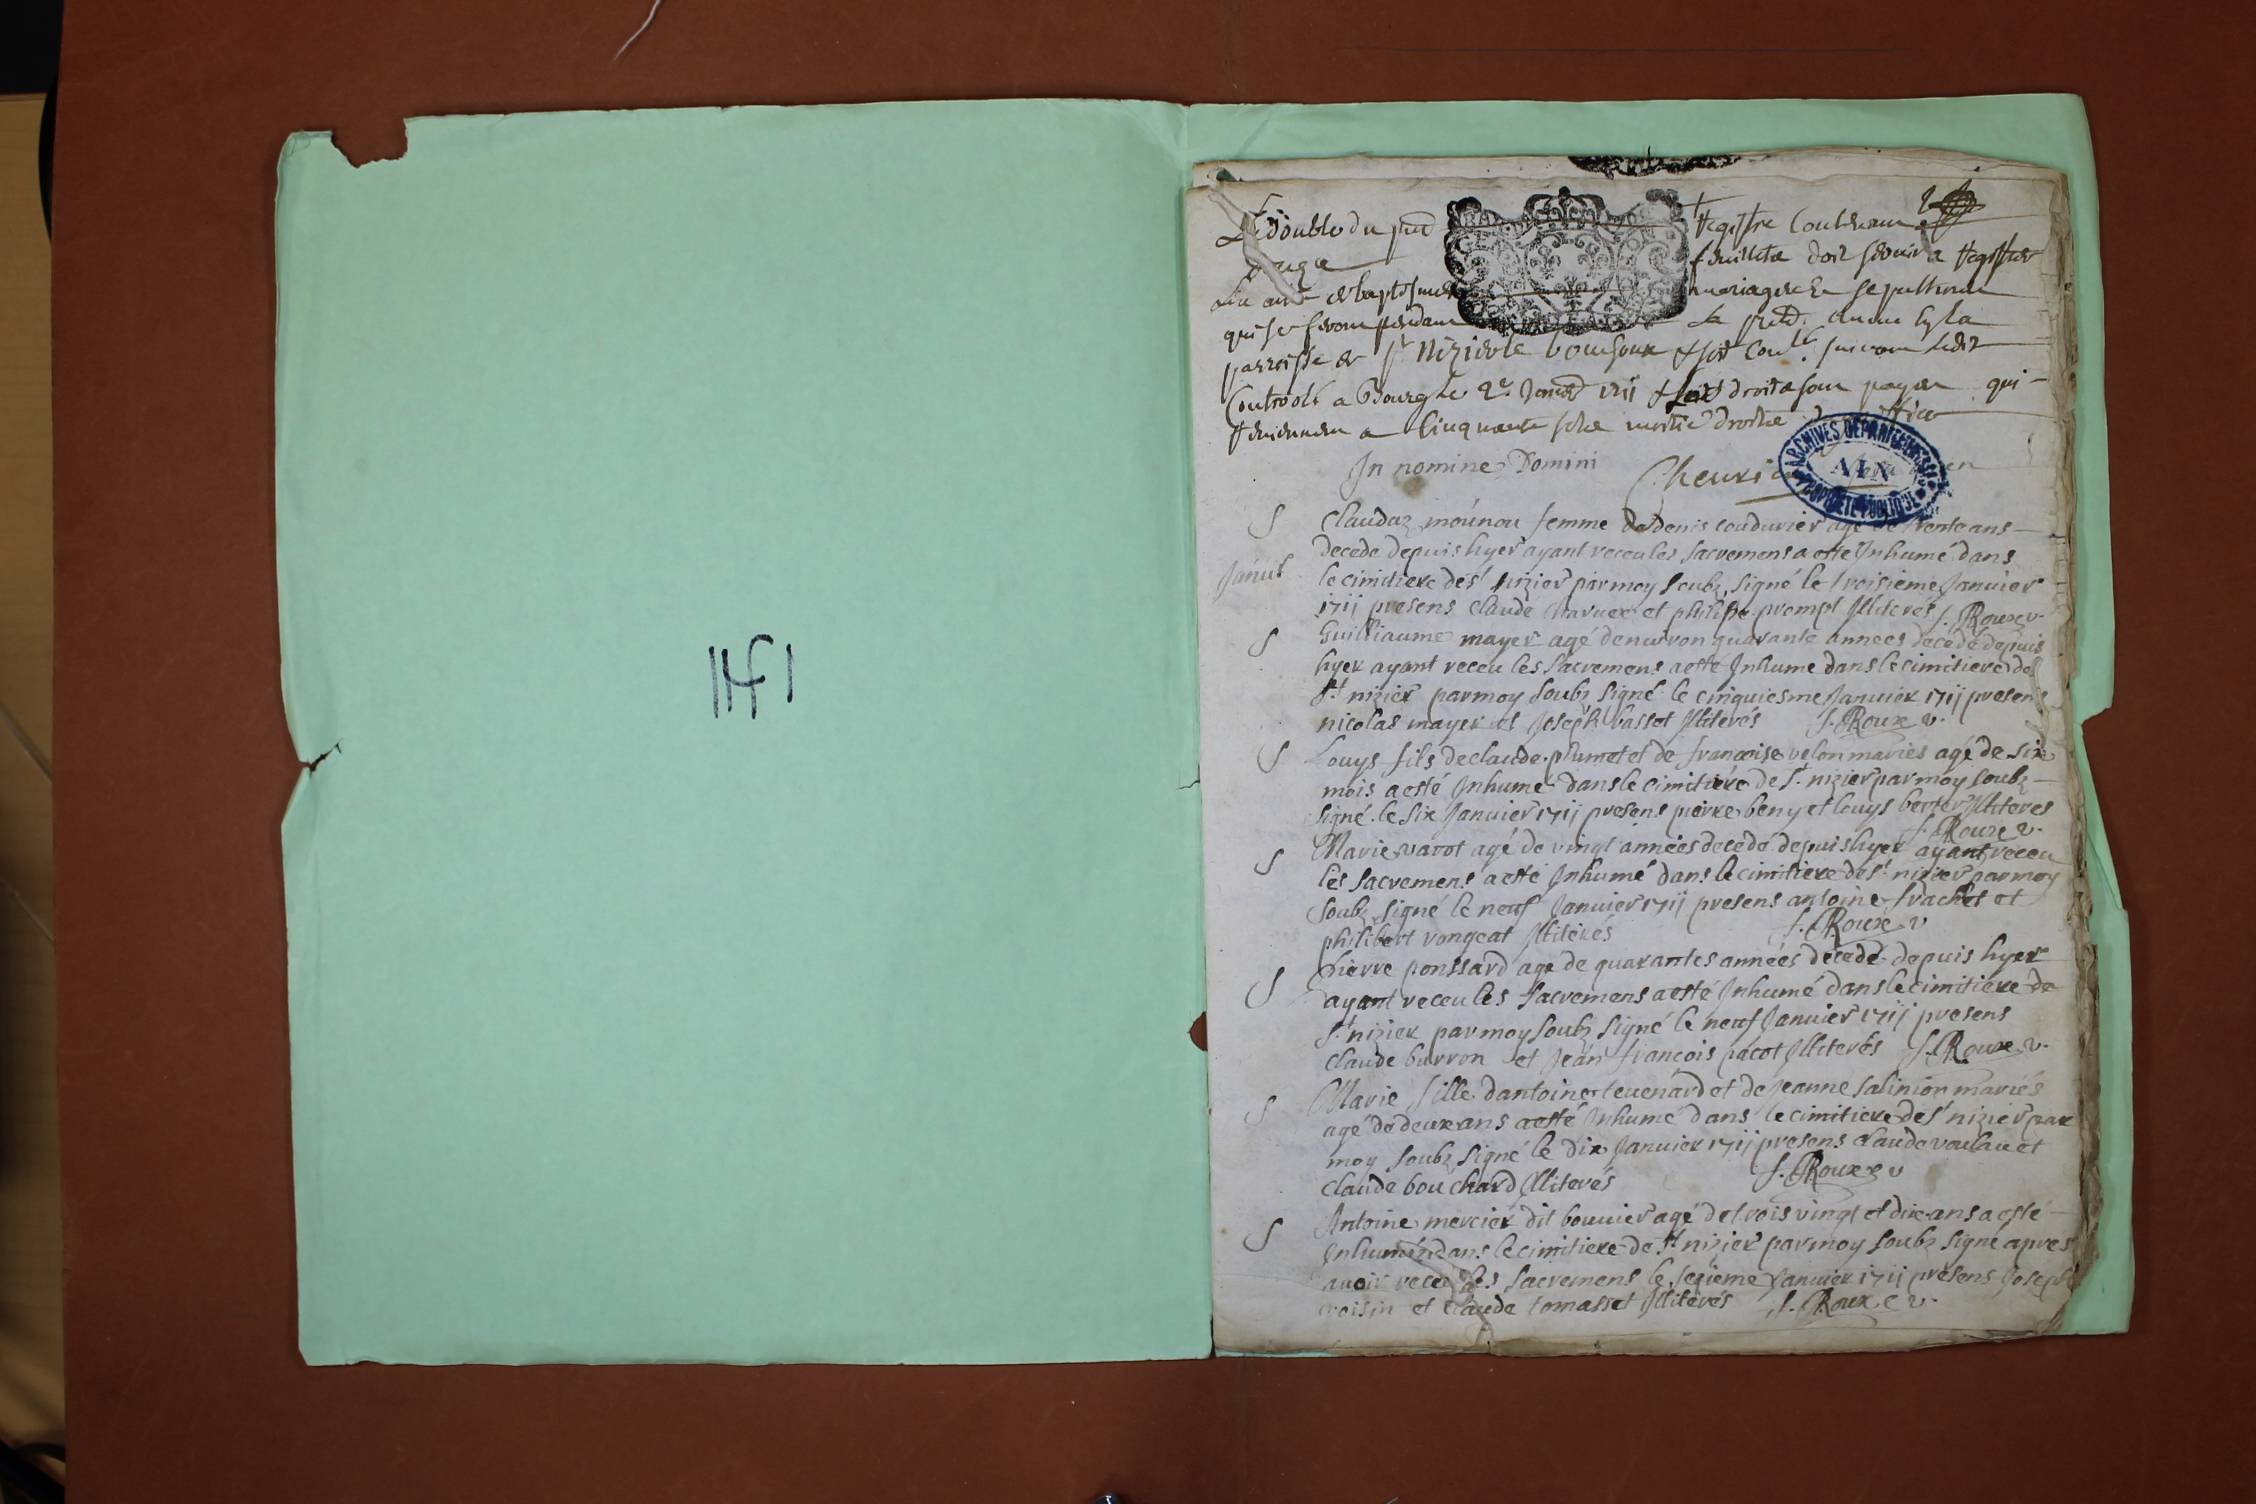 Le double du pnt registre contenant
feuillets doit servir a registrer
les actes de baptesmes mariages et sepultures
qui se feront pendant la pnte annee en la
parroisse de St Nizier le bouchoux
Controllé a Bourg le 2e 1711 droits
a cinquante sols
ARCHIVES DEPARTEMENTALES
AIN
PROPRIETE PUBLIQUE
In nomine Domini
S Claudaz mounou femme de denis coudurier agé de trente ans
decede depuis hyer ayant receu les sacremens a esté Inhumé dans
Januier
le cimitiere de st nizier par moy soubz signé le troisieme Januier
1711 presens claude charuex et philipe prompt Illiterés J. Roux v.
S Guilliaume mayer agé denviron quarante annees decedé depuis
hyer ayant receu les sacremens a esté Inhume dans le cimitiere de
st nizier par moy soubz signé le cinquiesme Januier 1711 presens
nicolas mayer et Joseph basset Illiterés J. Roux v.
S Louys fils de claude plumet et de francoise velon mariés agé de six
mois a esté Inhumé dans le cimitiere de st nizier par moy soubz
signé le six Januier 1711 presens pierre beny et louys Illiteres
J. Roux v.
S Marie varot agé de vingt années decedé depuis hyer ayant receu
les sacremens a esté Inhumé dans le cimitiere de st nizier par moy
soubz signé le neuf Januier 1711 presens antoine frachet et
philibert vongeat Illiterés J. Roux v
S pierre ponssard agé de quarantes années decedé depuis hyer
ayant receu les sacremens a esté Inhumé dans le cimitiere de
st nizier par moy soubz signé le neuf Januier 1711 presens
claude burron et Jean francois pacot Illiterés J. Roux v.
S Marie fille dantoine teuenard et de Jeanne salinion mariés
agé de deux ans a esté Inhumé dans le cimitiere de st nizier par
moy soubz signé le dix Januier 1711 presens claude vaulau et
claude bouchard Illiterés J. Roux v
S Antoine mercier dit bouuier agé de trois vingt et dix ans a esté
Inhumé dans le cimitiere de st nizier par moy soubz signé apres
auoir receu les sacremens le sezieme Januier 1711 presens Joseph
voisin et claude tomasset Illiterés J. Roux v.